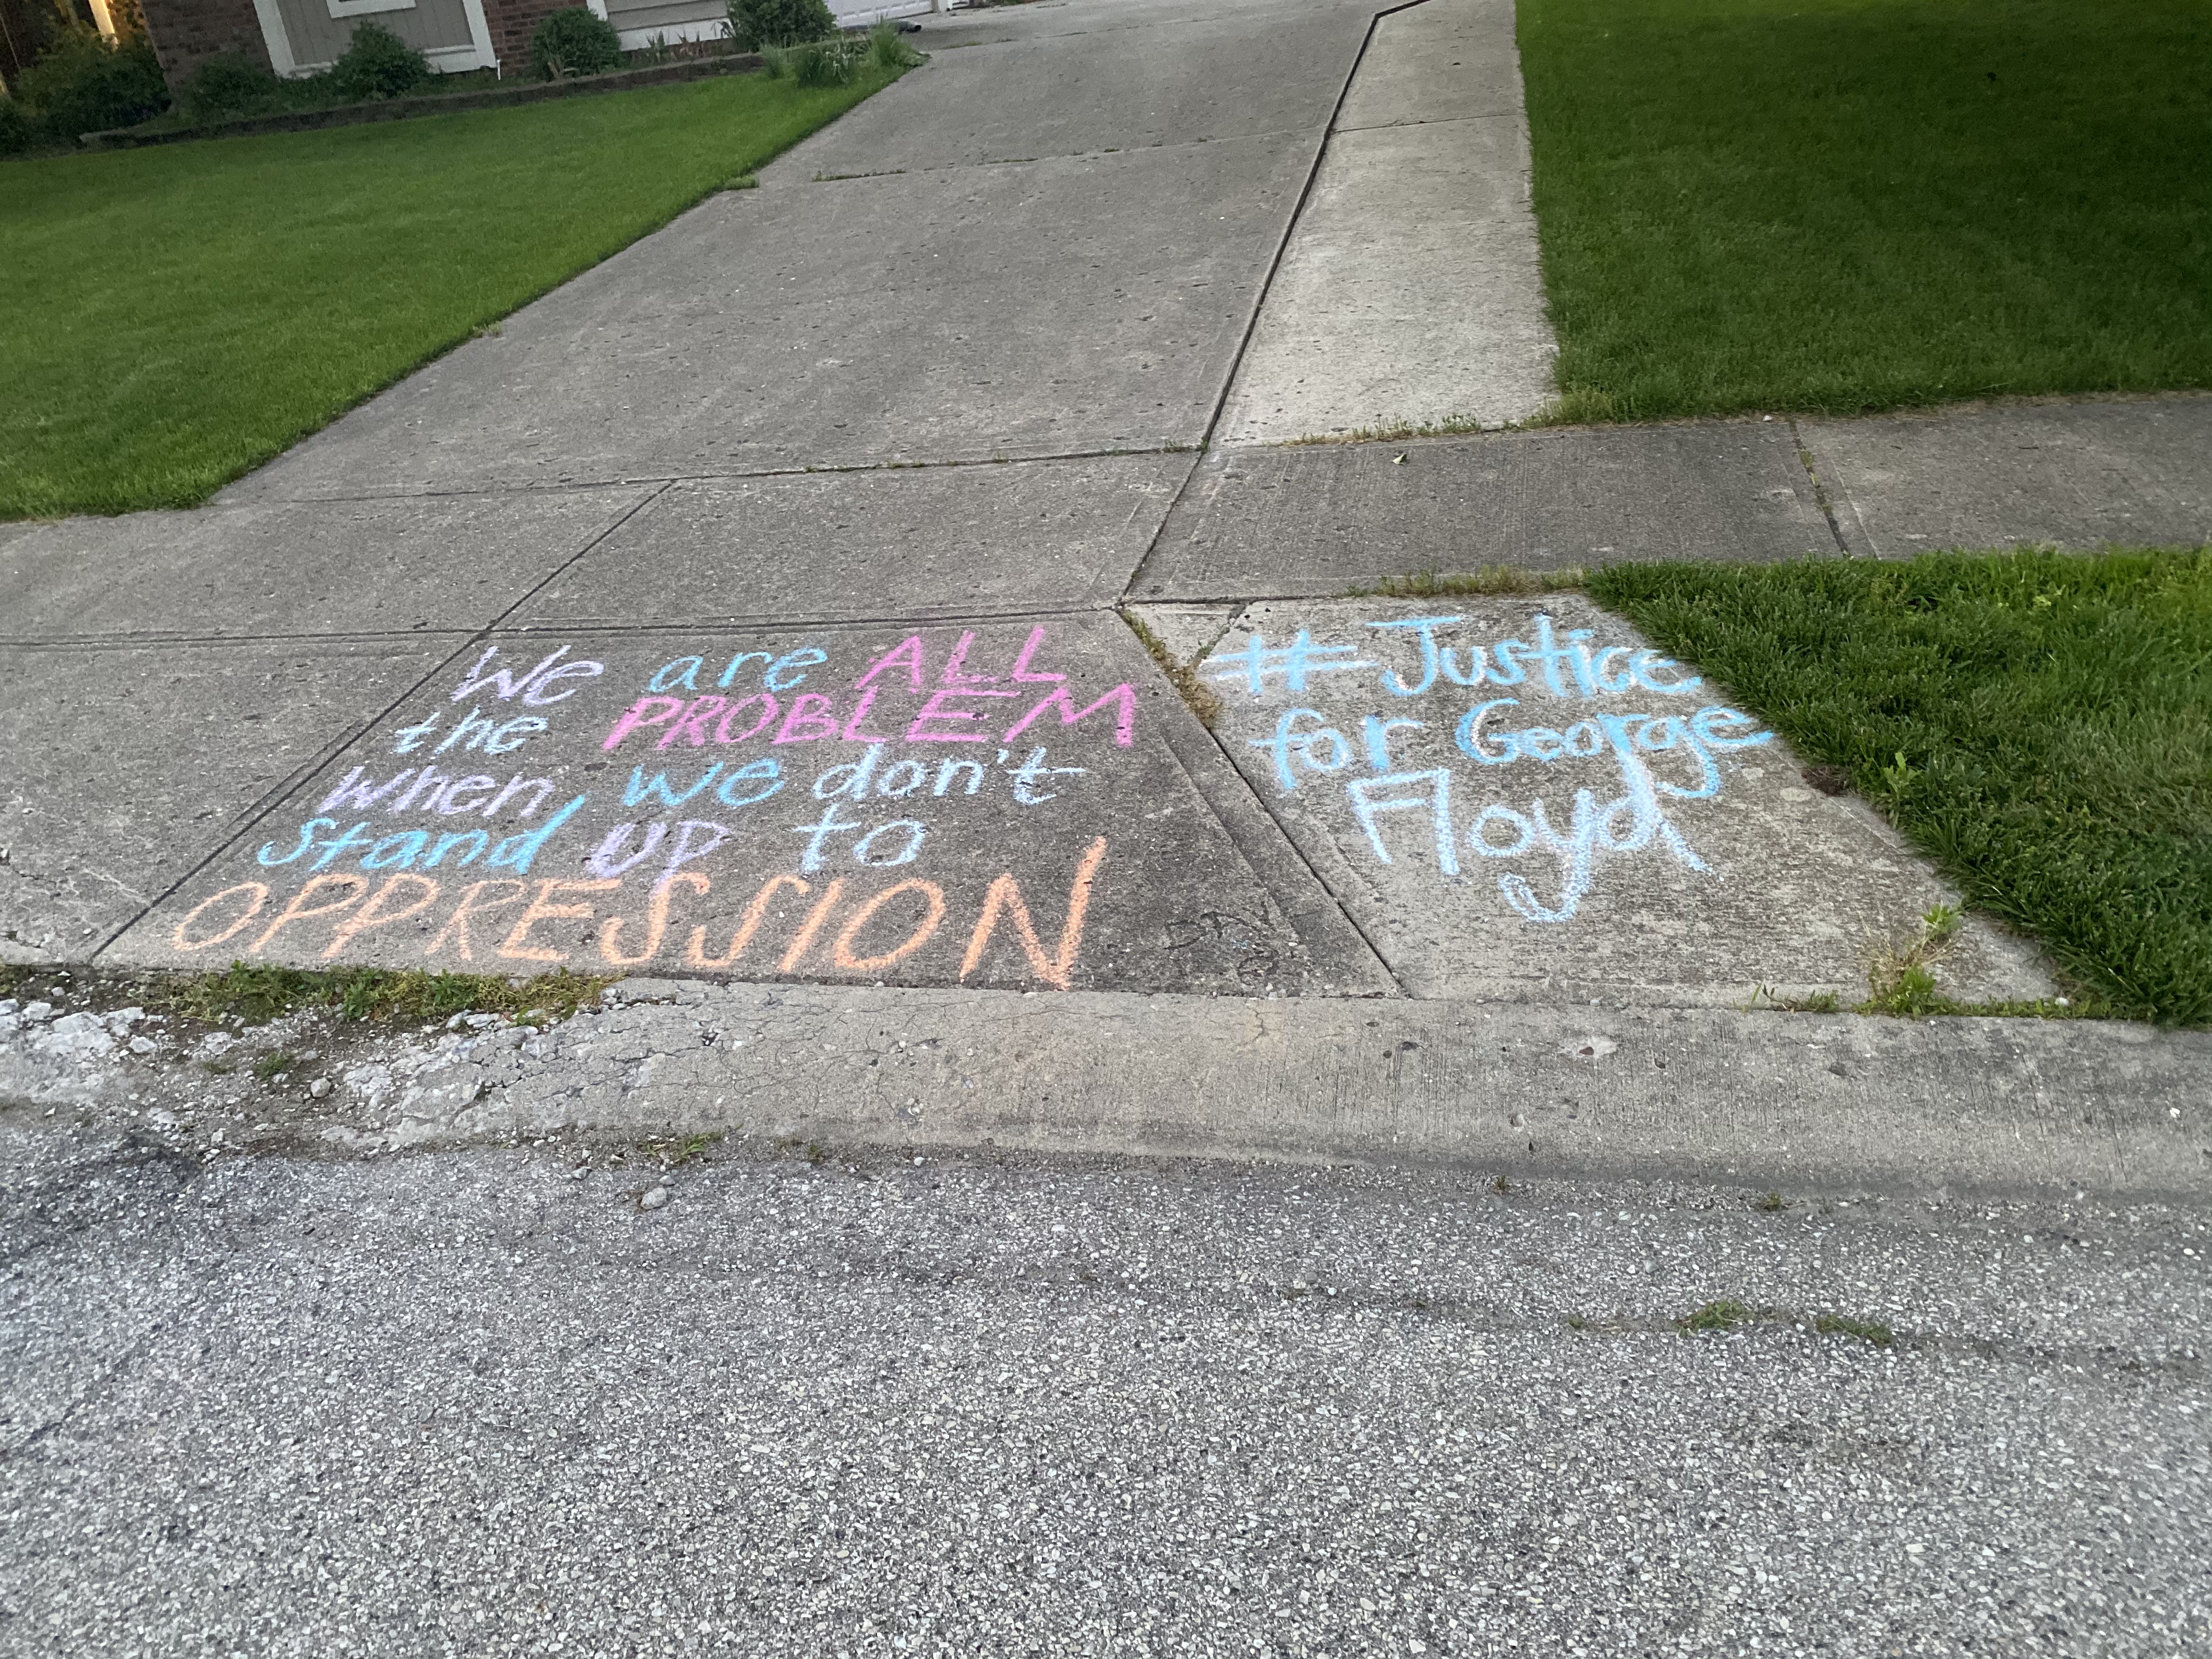 We are ALL
the PROBLEM
when we don't
stand UP to
OPPRESSION
# Justice
for George
Floyd